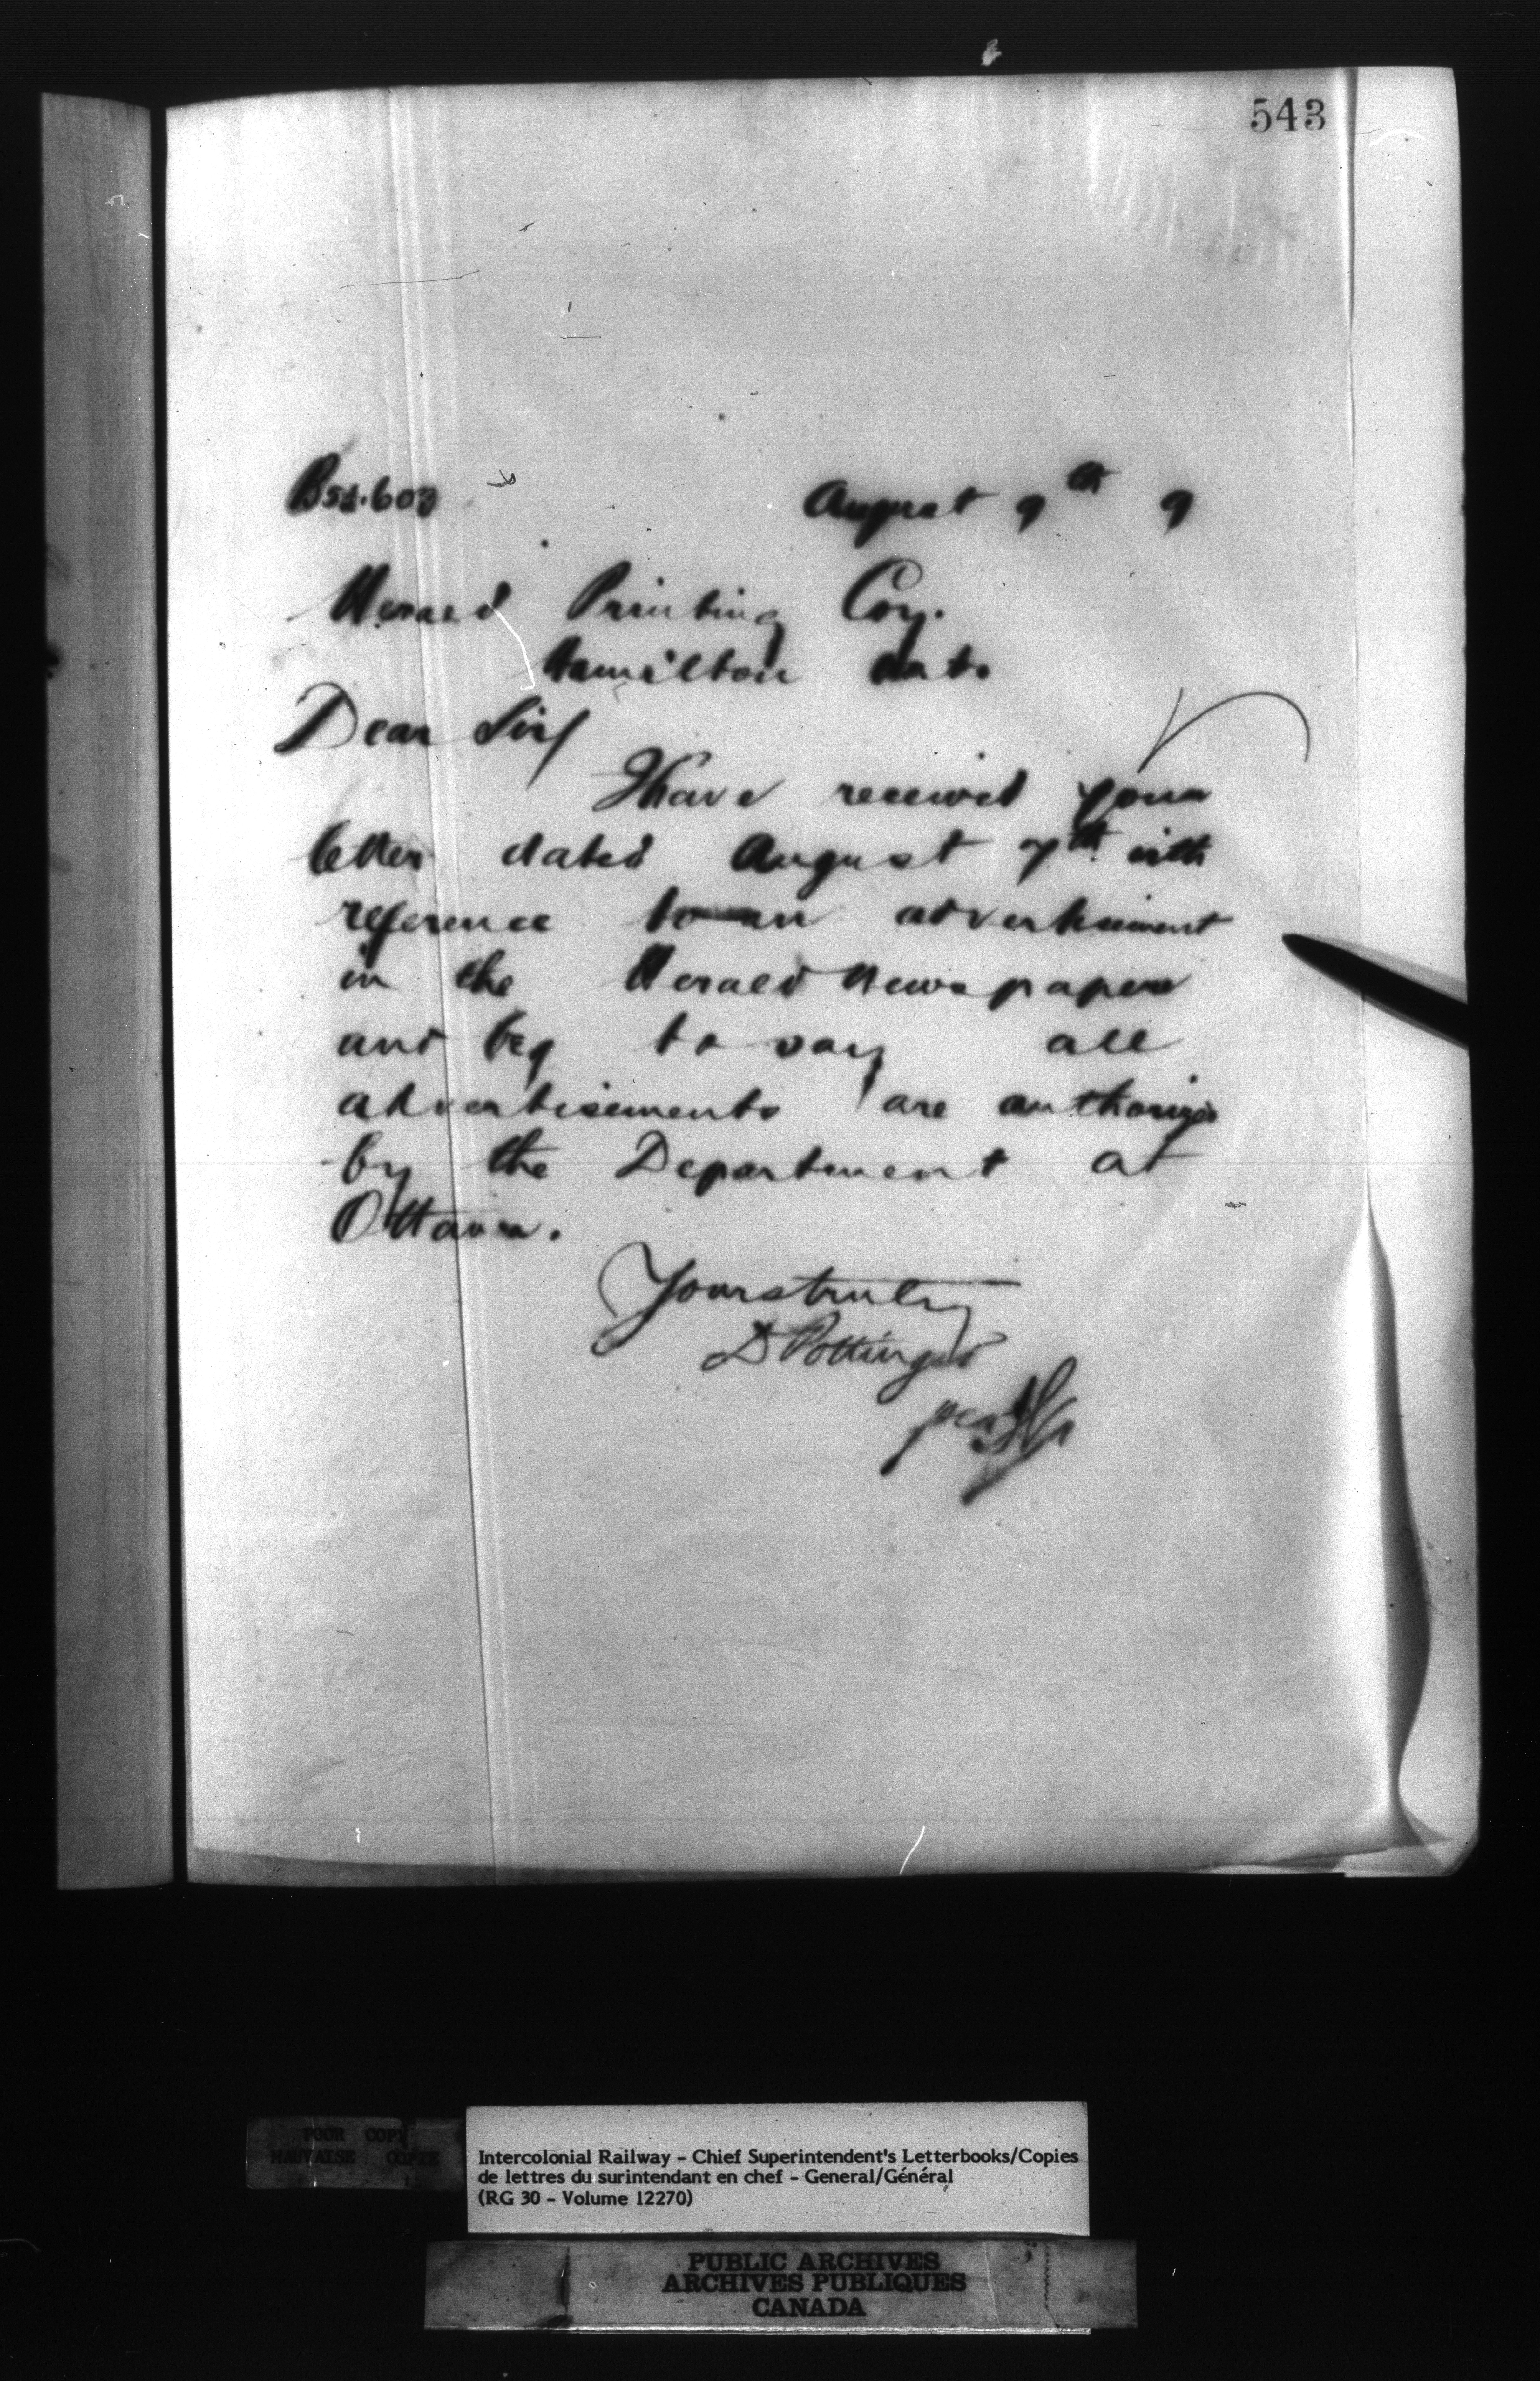 543
B52.603 August 9th 9
Herald Printing Coy.
Hamilton Ont.
Dear Sir/
I have received your
letter dated August 7th with
reference to an advertisement
in the Herald Newspaper
and beg to say all
advertisements are authorized
by the Department at
Ottawa.
Yours truly
D Pottinger
per
POOR COPY
MAUVAISE COPIE
Intercolonial Railway - Chief Superintendent's Letterbooks/Copies
de lettres du surintendant en chef - General/Général
(RG 30 - Volume 12270)
PUBLIC ARCHIVES
ARCHIVES PUBLIQUES
CANADA